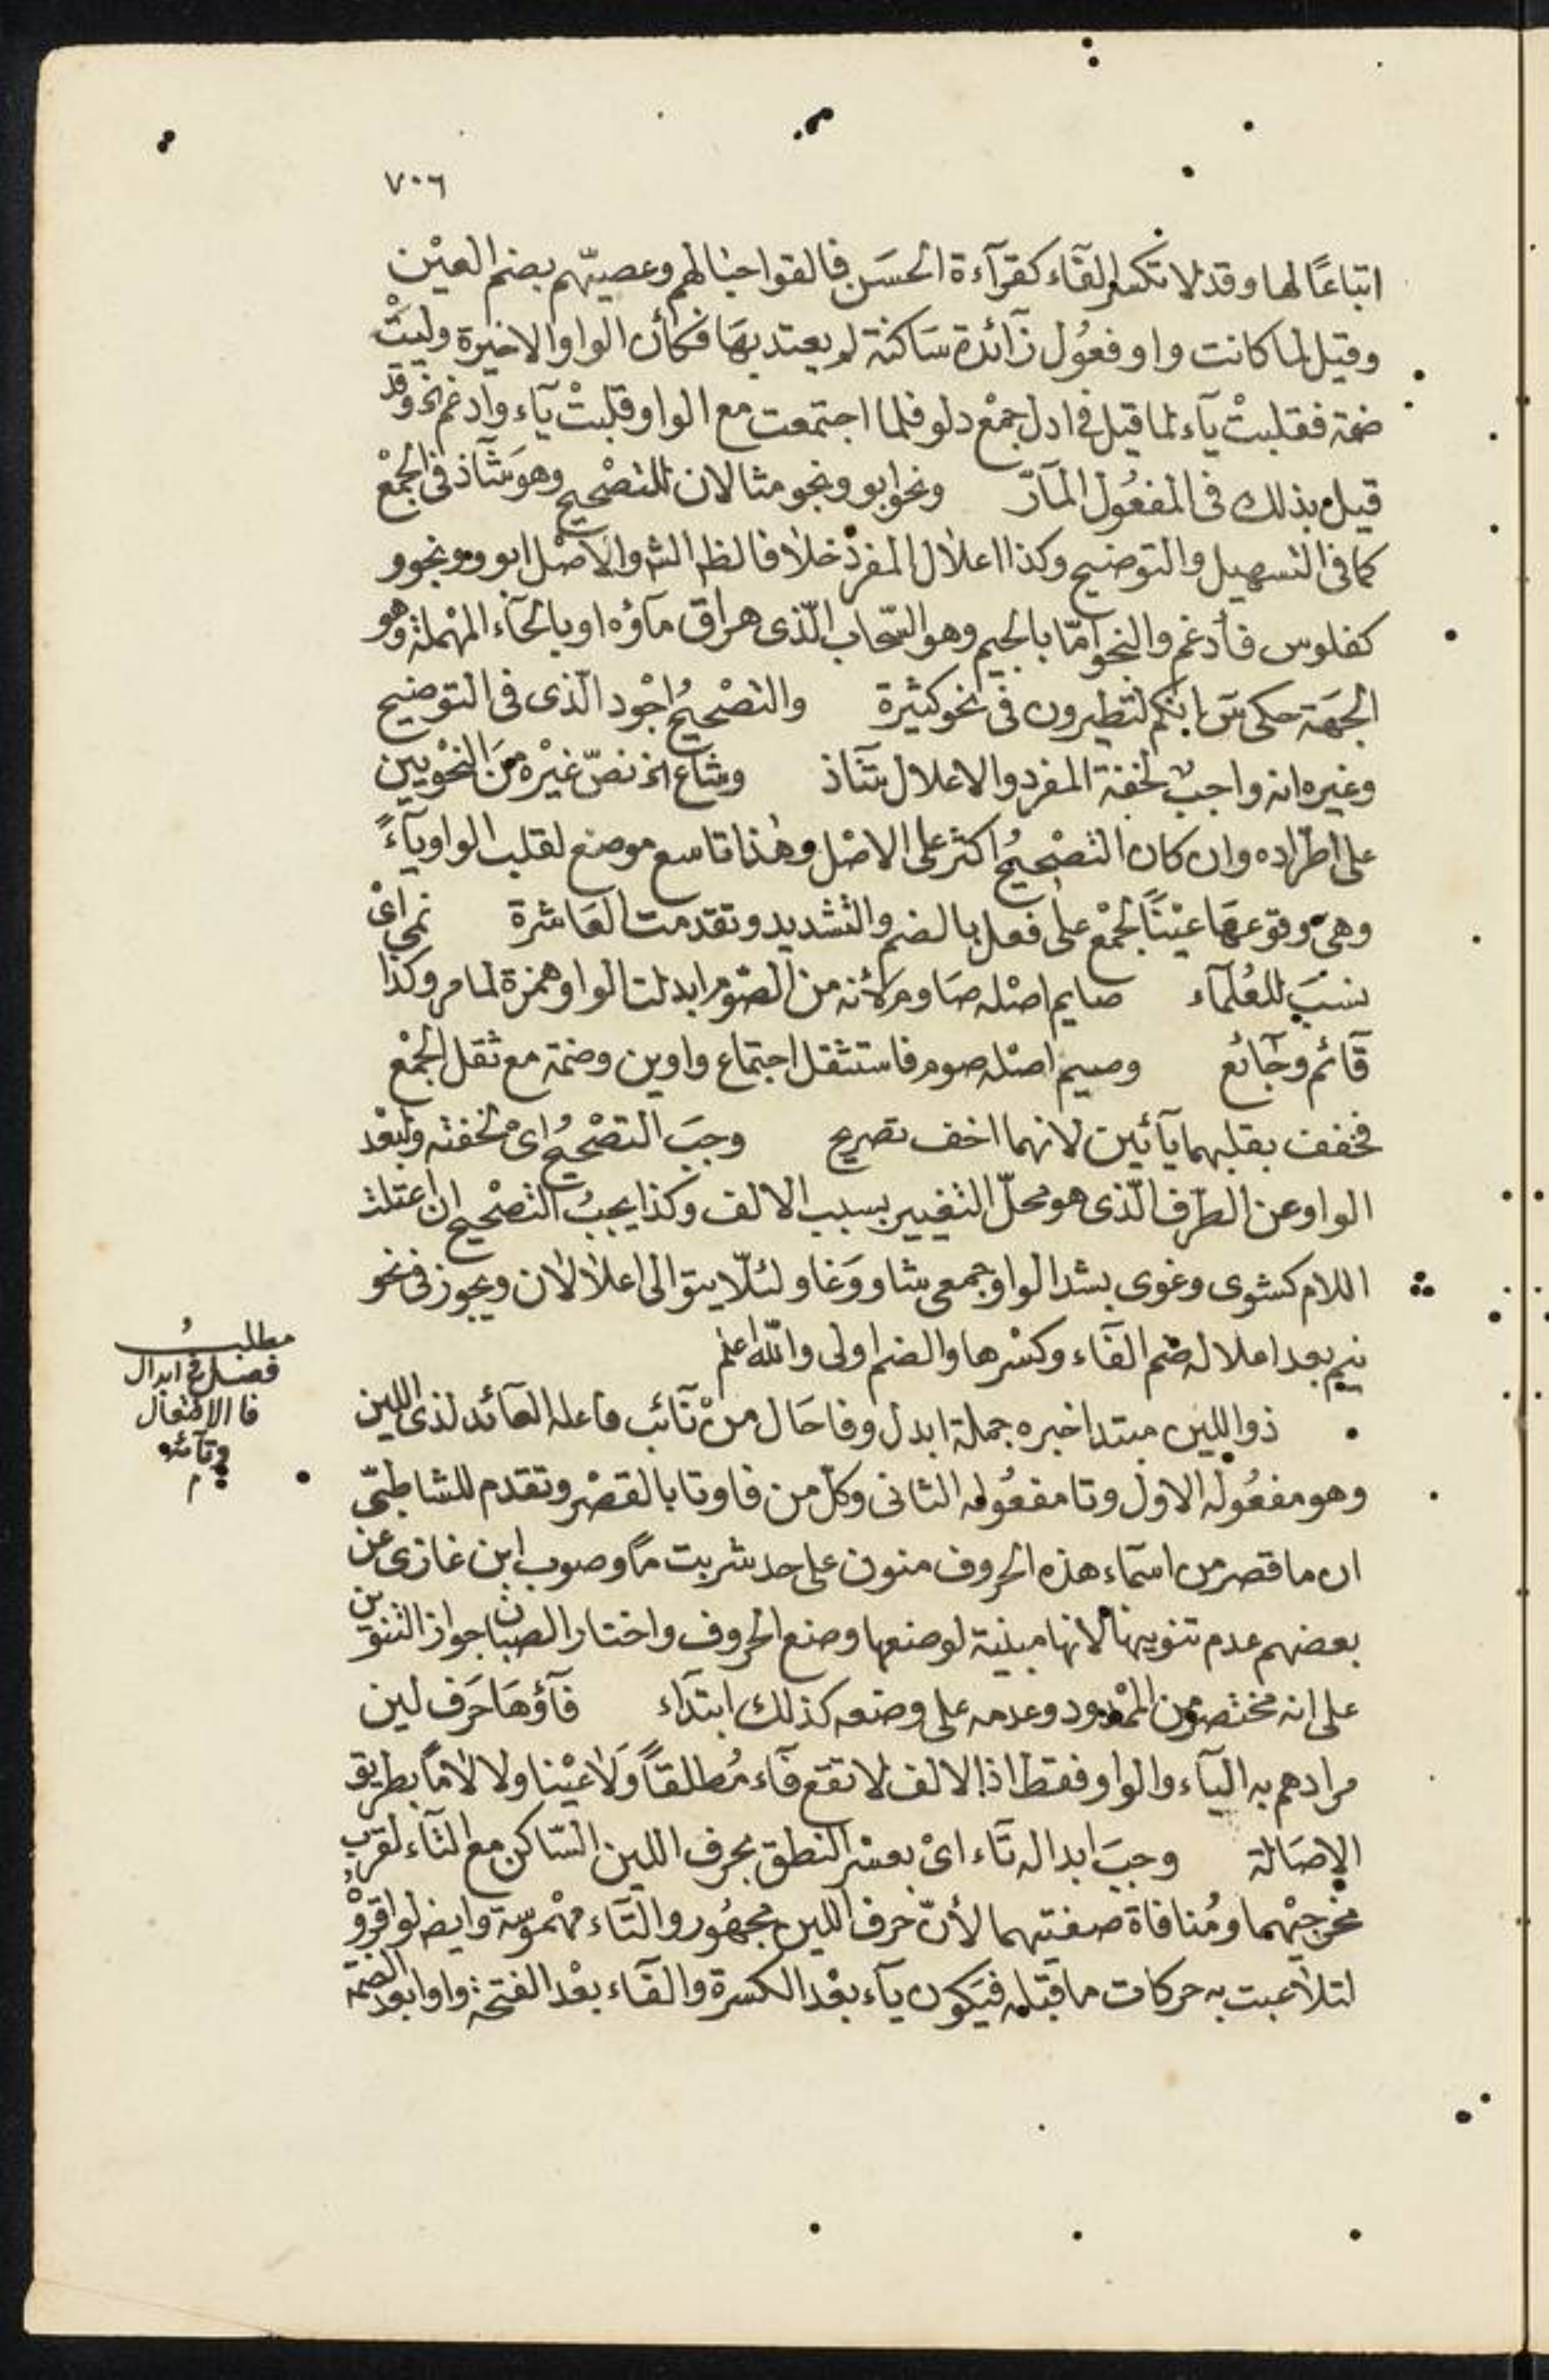 ٧٠٦
اتباعًا لها وقد لا تكسر الفآء كقرآءة الحسَن فالقوا حبالهم وعصيّهم بضم العيْن
وقيل لما كانت واو فعُول زآئدة سَاكنة لم يعتد بهَا فكأن الواو الاخيرة وليَتْ
ضمة فقلبتْ يآء لما قيل فى ادل جمْع دلو فلما اجتمعت مع الواو قلبتْ يآء وادغم انخ وقد
قيل بذلك فى المفعُول المآرّ ونحو ابو ونجو مثالان للتصْحيح وهوَ شآذ فى الجمْع
كما فى التسهيل والتوضيح وكذا اعلال المفرد خلافا لظه الش والاصْل ابووو ونجوو
كفلوس فأدغم والنجو امّا بالجيم وهو السّحاب الّذى هراق مآؤه او بالحآء المهْملة وهو
الجهَة حكى سَ انكم لتطيرون فى نحو كثيرة والتصْحيحُ اجْود الّذى فى التوضيح
وغيره انه واجبٌ لخفة المفرد والاعلال شآذ وشاع انخ نصّ غيْره منَ النحْويين
على اطراده وان كان التصْحيحُ اكثر على الاصْل وهٰذا تاسع موضع لقلب الواو يآءً
وهىَ وقوعهَا عيْنًا لجمْع على فعل بالضم والتشديد وتقدمت العَاشرة نمي اىْ
نسبَ للعُلمآء صايم اصْله صَاوم لأنه من الصّوم ابدلت الواو همزة لما مر وكذا
قآئم وجآئع وصيم اصْله صوم فاستثقل اجتماع واوين وضمة مع ثقل الجمْع
فخفف بقلبهما يآئين لانهما اخف تصريح وجبَ التصْحيحُ اى لخفته ولبعْد
الواو عن الطرف الّذى هو محلّ التغيير بسبب الالف وكذا يجبُ التصْحيح ان اعتلت
اللام كشوى وغوى بشد الواو جمعى شاو وَغاو لئلّا يتوالى اعلالان ويجوز فى نحو
نيم بعد اعلاله ضم الفآء وكسْرها والضم اولى والله اعلم
ذو اللين مبتدا خبره جملة ابدل وفا حَال منْ نآئب فاعله العآئد لذى اللين
وهو مفعُوله الاول وتا مفعُوله الثانى وكلّ من فا وتا بالقصْر وتقدم للشاطبىّ
ان ما قصر من اسمآء هذه الحروف منون على حد شربت مًا وصوب ابن غازى عن
بعضهم عدم تنوينها لانها مبنية لوضعها وضع الحروف واختار الصبان جواز التنوين
على انه مختصر من الممْدود وعدمه على وضعه كذلك ابتدآء فآؤهَا حَرف لين
مرادهم به اليآء والواو فقط اذ الالف لا تقع فآء مُطلقًا وَلا عيْنا ولا لامًا بطريق
الاصَالة وجبَ ابداله تآء اىْ بعسْر النطق بحرف اللين السّاكن مع التآء لقرب
مخرجيْهما ومُنافاة صفتيهما لأنّ حرف اللين مجهُور والتآء مهْموسة وايضا لو اقروْ
لتلاعبت به حركات ما قبْله فيَكون يآء بعْد الكسرة والفآء بعْد الفتحة واوا بعد الضمة
مطلبُ
فصل فى ابدال
فا الافتعال
وتآئه